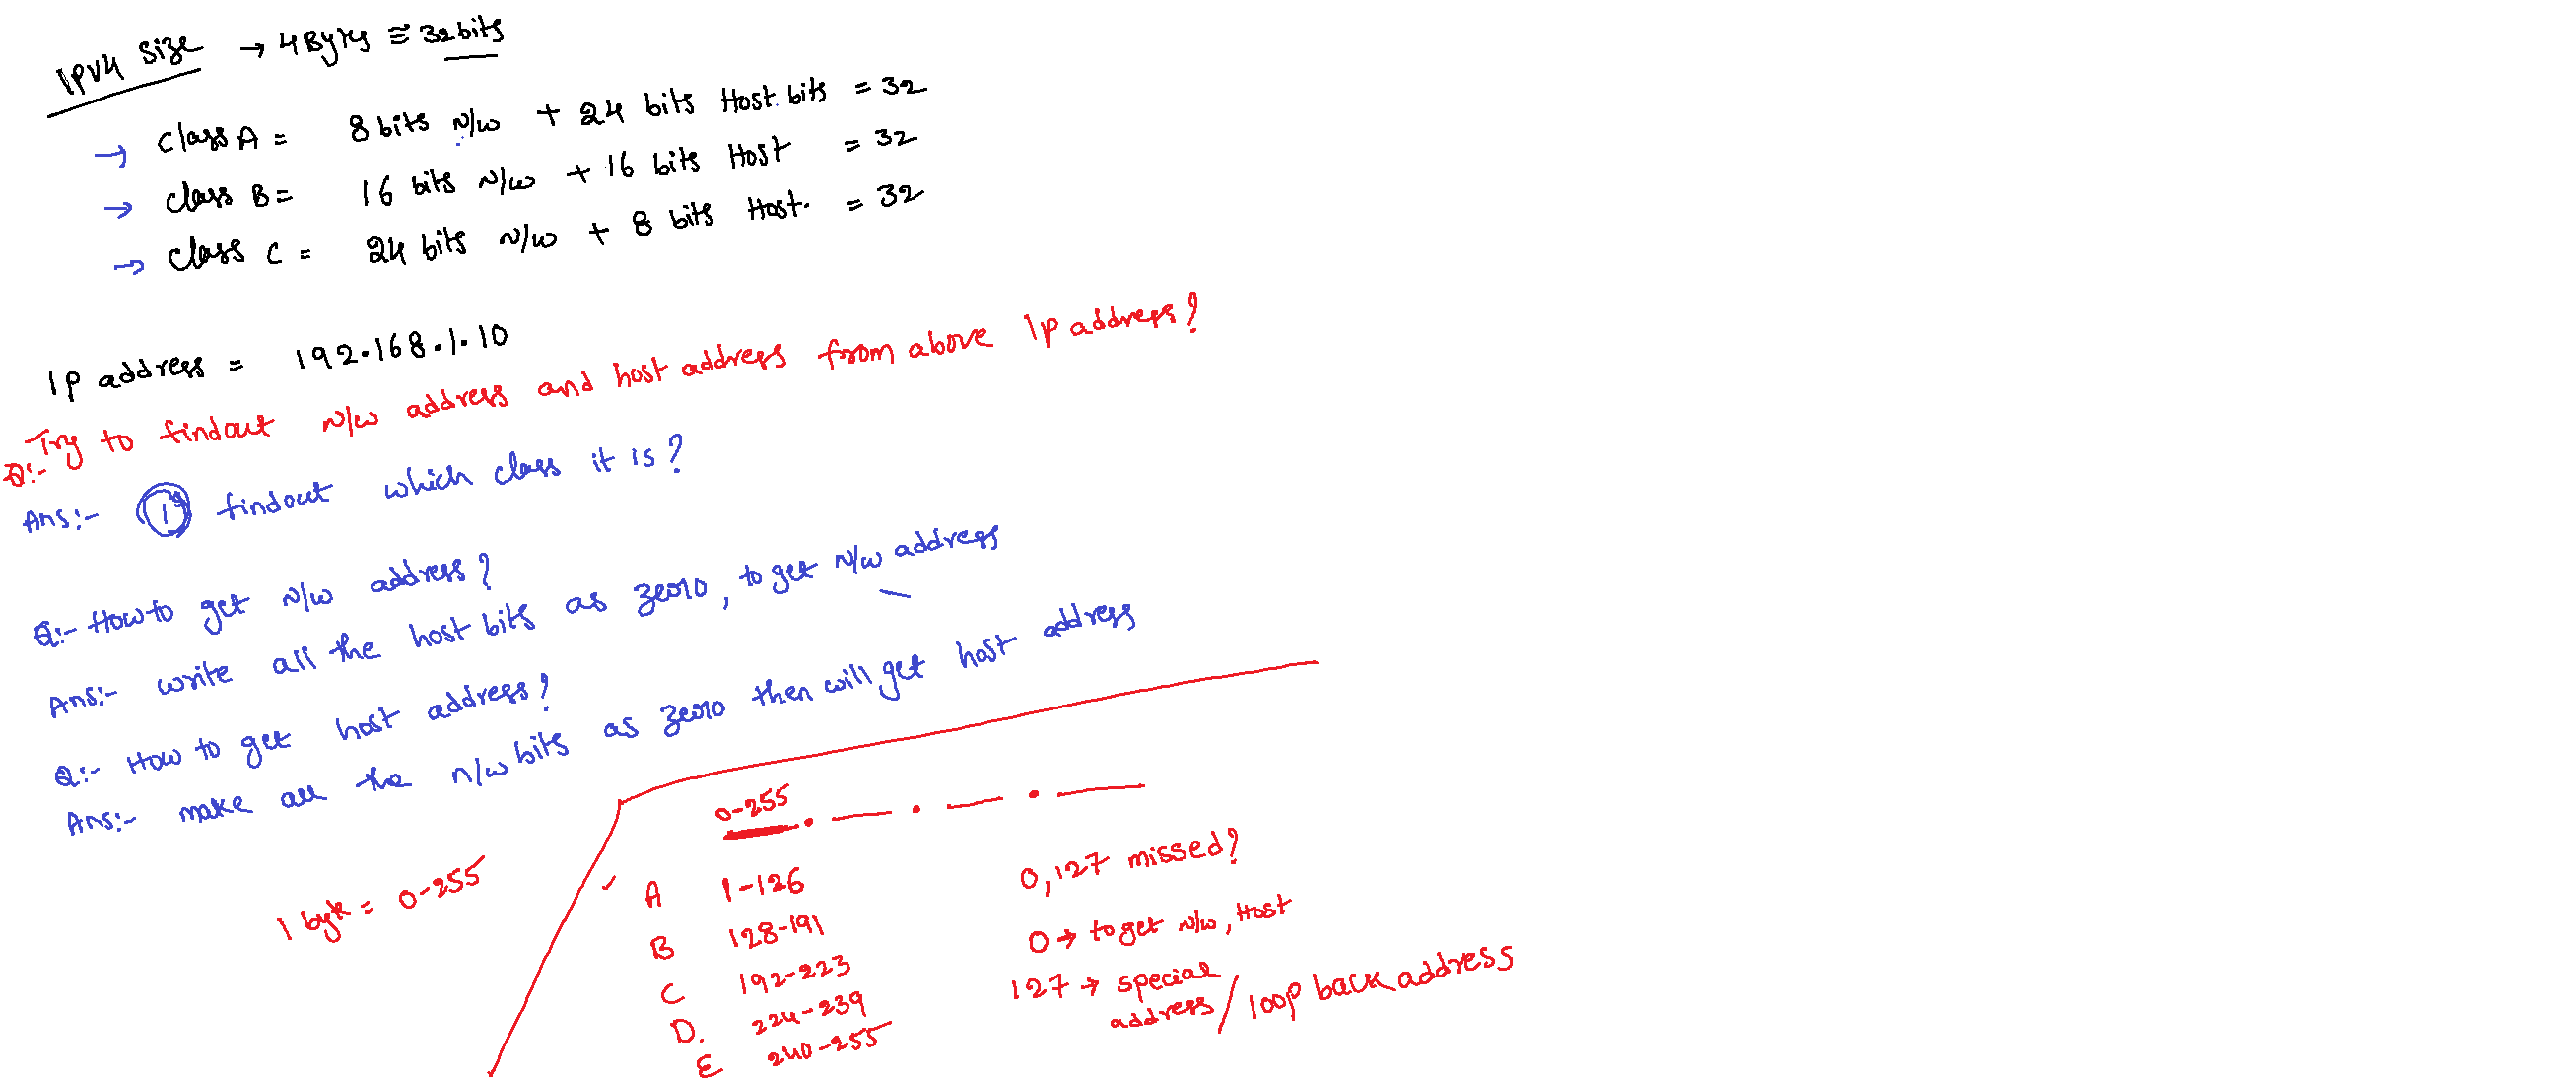 IPV4 Size → 4Bytes ≡ 32bits
→ Class A = 8 bits N/w + 24 bits Host bits = 32
→ class B = 16 bits N/w + 16 bits Host = 32
→ class C = 24 bits N/w + 8 bits Host. = 32
IP address = 192.168.1.10
Q:- Try to findout N/w address and host address from above IP address?
Ans:- 1 findout which class it is?
Q:- How to get N/w address?
Ans:- write all the host bits as zero, to get N/w address
Q:- How to get host address?
Ans:- make all the n/w bits as zero then will get host address
0-255 . — . — . —
1 byte = 0-255
A 1-126
B 128-191
C 192-223
D. 224-239
E 240-255
0,127 missed?
0 → to get N/w, Host
127 → special address / loop back address